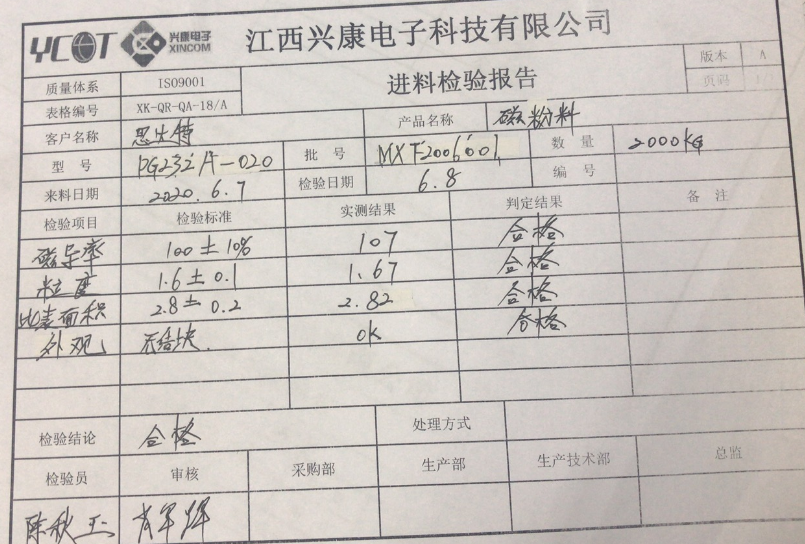 YCOT 兴康电子 XINCOM 江西兴康电子科技有限公司
质量体系 ISO9001 进料检验报告 版本 A
表格编号 XK-QR-QA-18/A 页码
客户名称 产品名称 磁粉料
型号 PG232A-020 批号 MXF2006001 数量 2000KG
来料日期 2020.6.7 检验日期 6.8 编号
检验项目 检验标准 实测结果 判定结果 备注
磁导率 100±10% 107 合格
粒度 1.6±0.1 1.67 合格
比表面积 2.8±0.2 2.82 合格
外观 无结块 OK 合格
检验结论 合格 处理方式
检验员 审核 采购部 生产部 生产技术部 总监
陈秋玉